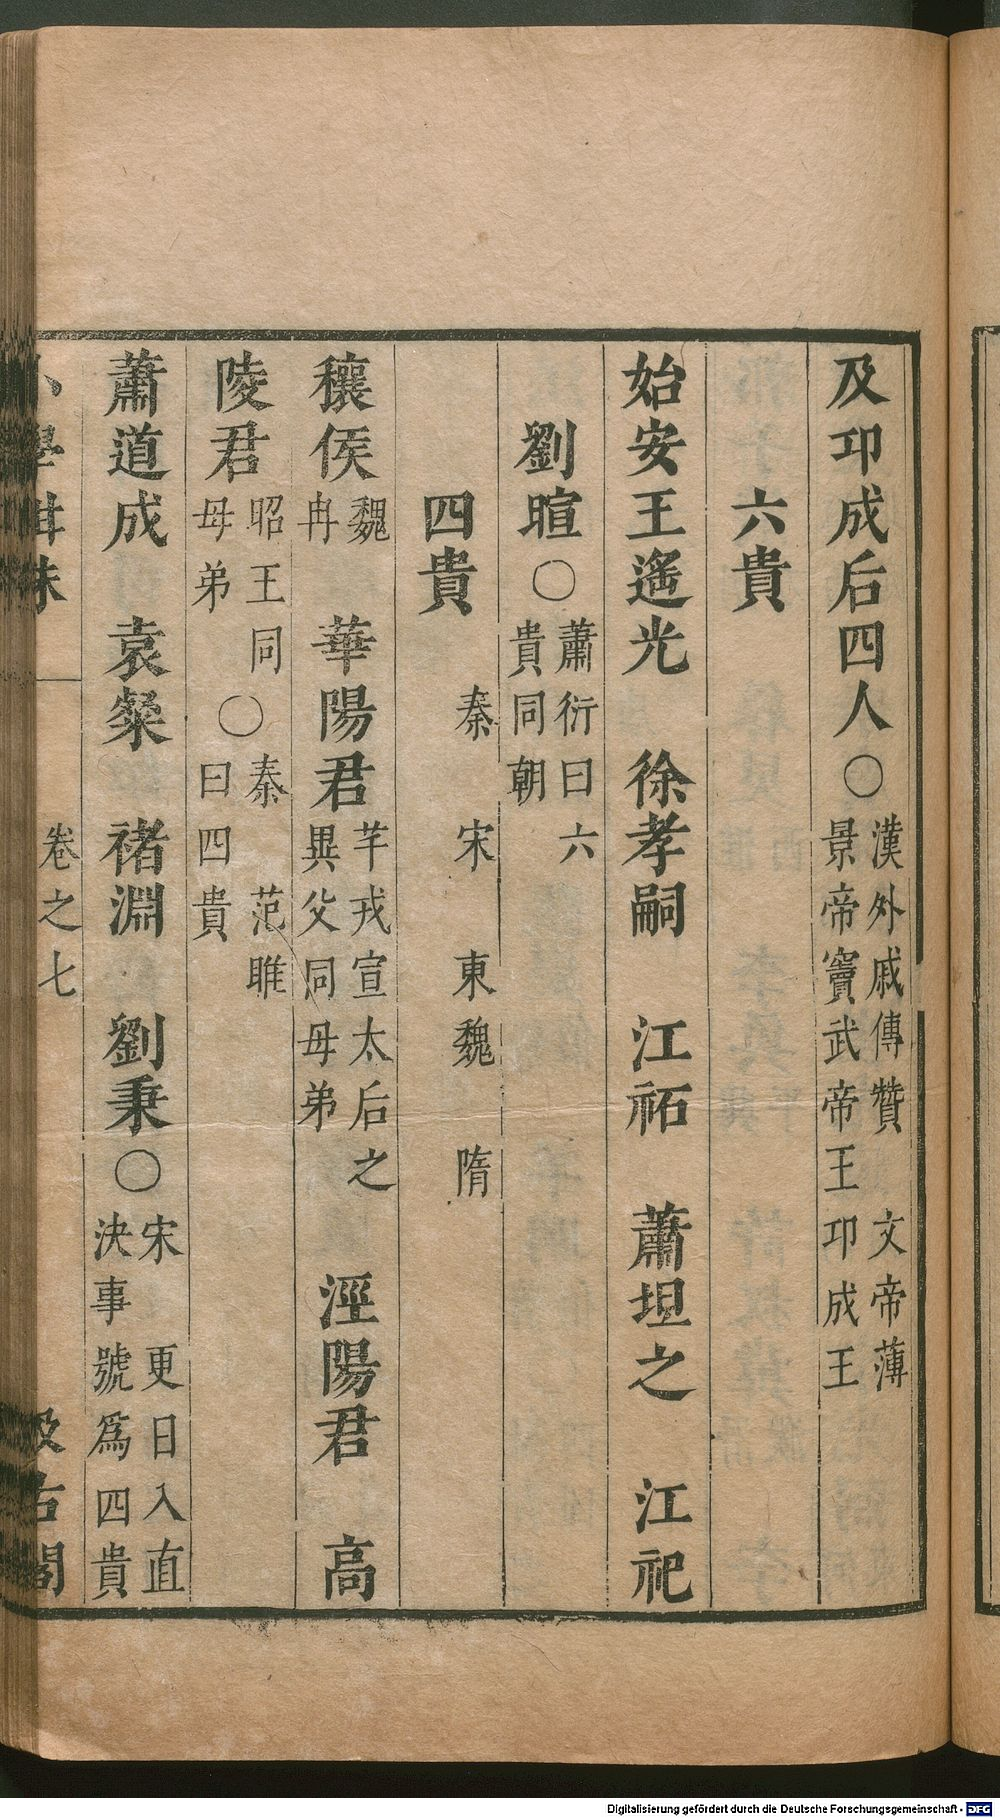 及卭成后四人○漢外戚傳贊 文帝薄
景帝竇武帝王卭成王
六貴
始安王遙光 徐孝嗣 江祏 蕭坦之 江祀
劉暄○蕭衍曰六
貴同朝
四貴 秦 宋 東魏 隋
穰侯魏
冉 華陽君芊戎宣太后之
異父同母弟 涇陽君 高
陵君昭王同
母弟○秦 范睢
曰四貴
蕭道成 袁粲 褚淵 劉秉○宋 更日入直
決事號爲四貴
小學紺珠 卷之七 汲古閣
Digitalisierung gefördert durch die Deutsche Forschungsgemeinschaft - DFG